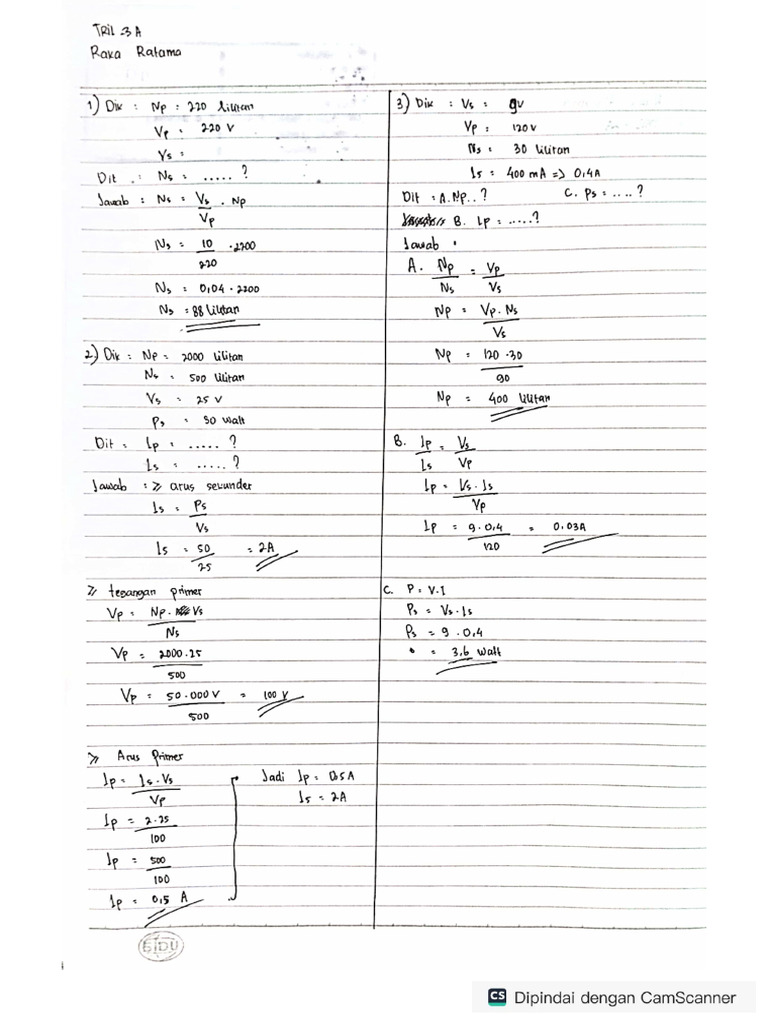 TRIL 3A
Raka Ratama
1) Dik : Np : 220 lilitan
Vp : 220 V
Vs =
Dit : Ns = ..... ?
Jawab : Ns = Vs/Vp . Np
Ns = 10/220 . 2200
Ns = 0,04 . 2200
Ns = 88 lilitan
2) Dik : Np = 2000 lilitan
Ns = 500 lilitan
Vs = 25 V
Ps = 50 watt
Dit = Ip = ..... ?
Is = ..... ?
Jawab : => arus sekunder
Is = Ps/Vs
Is = 50/25 = 2A
=> tegangan primer
Vp = Np . Vs/Ns
Vp = 2000.25/500
Vp = 50.000 V/500 = 100 V
=> Arus Primer
Ip = Is . Vs/Vp
Ip = 2.25/100
Ip = 500/100
Ip = 0,5 A
Jadi Ip = 0,5A
Is = 2A
3) Dik : Vs = 9v
Vp = 120 v
Ns = 30 lilitan
Is = 400 mA => 0,4A
Dit : A. Np..? C. Ps = ....?
B. Ip = .....?
Jawab :
A. Np/Ns = Vp/Vs
Np = Vp . Ns/Vs
Np = 120 . 30/90
Np = 400 lilitan
B. Ip/Is = Vs/Vp
Ip = Vs . Is/Vp
Ip = 9 . 0,4/120 = 0,03A
C. P = V.I
Ps = Vs . Is
Ps = 9 . 0,4
= 3,6 watt
SIDU
CS Dipindai dengan CamScanner